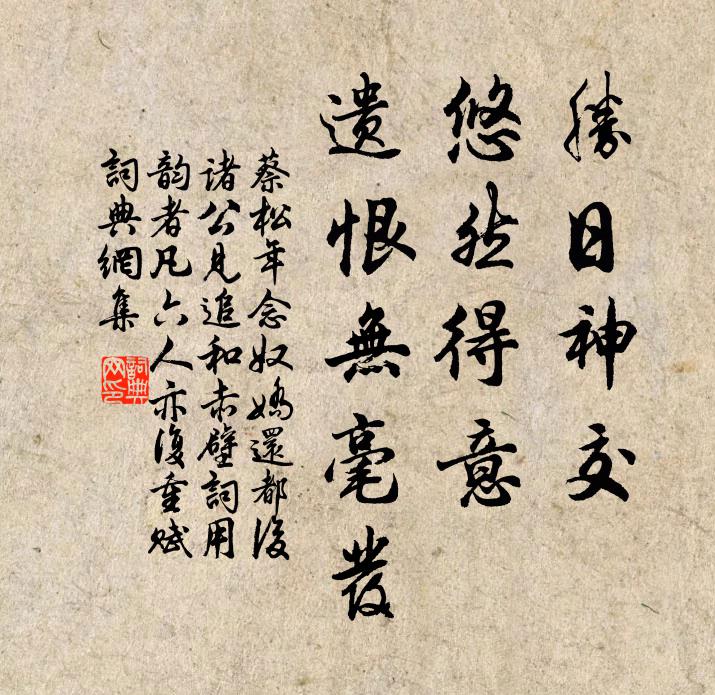 勝日神交
悠然得意
遗恨無毫發
蔡松年念奴嬌還都後
诸公見追和赤壁詞用
韵者凡六人亦復重赋
詞典網集
詞典
网印